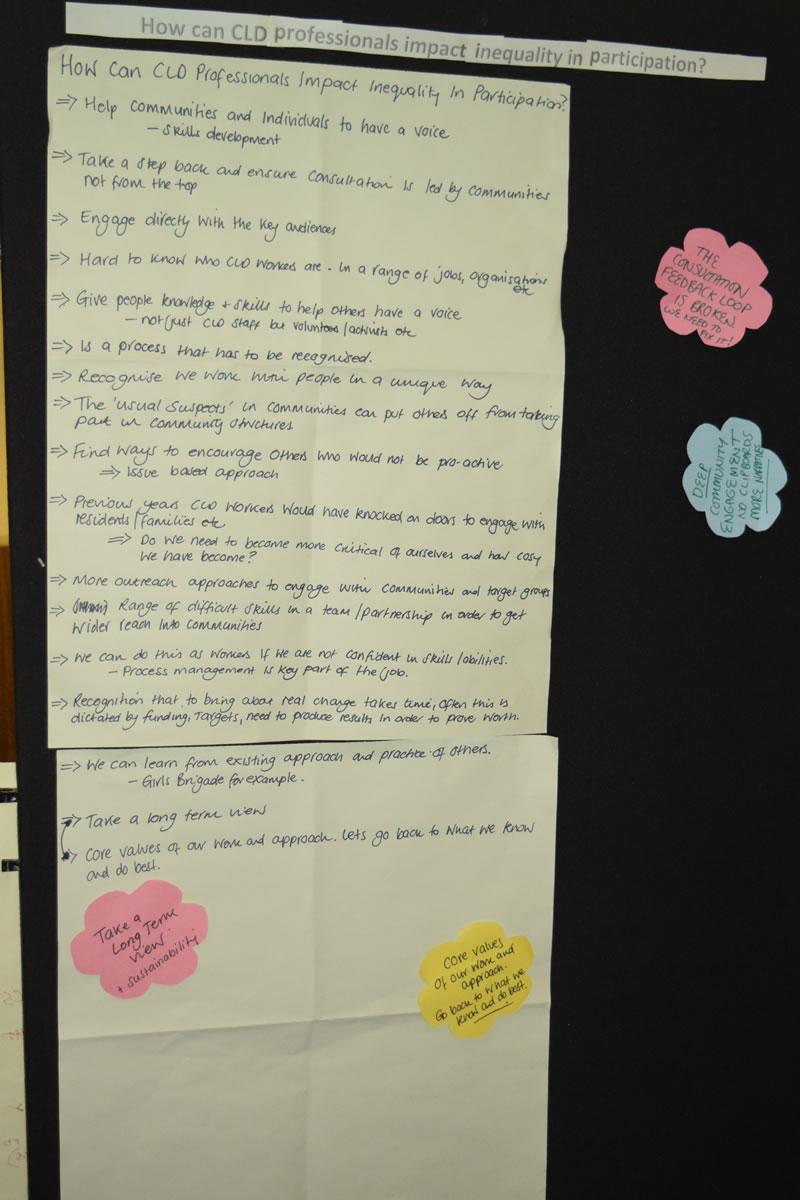 How can CLD professionals impact inequality in participation?
How Can CLD Professionals Impact Inequality In Participation?
⇒ Help Communities and Individuals to have a voice
– Skills development
⇒ Take a step back and ensure Consultation is led by communities
not from the top
⇒ Engage directly with the key audiences
⇒ Hard to know who CLD workers are - In a range of jobs, organisations
etc
⇒ Give people knowledge + skills to help others have a voice
– not just CLD staff but volunteers / activists etc
⇒ Is a process that has to be recognised.
⇒ Recognise we work with people in a unique way
⇒ The 'usual suspects' in communities can put others off from taking
part in community structures
⇒ Find ways to encourage others who would not be pro-active
⇒ Issue based approach
⇒ Previous years CLD workers would have knocked on doors to engage with
residents / families etc
⇒ Do we need to become more critical of ourselves and how cosy
we have become?
⇒ More outreach approaches to engage with communities and target groups
⇒ Range of difficult skills in a team / partnership in order to get
wider reach into communities
⇒ We can do this as workers if we are not confident in skills / abilities.
– Process management is key part of the job.
⇒ Recognition that to bring about real change takes time, often this is
dictated by funding, Targets, need to produce results in order to prove worth.
⇒ We can learn from existing approach and practice of others.
– Girls Brigade for example.
⇒ Take a long term view
⇒ Core values of our work and approach. Lets go back to what we know
and do best.
Take a
Long Term
view
+ sustainability
Core values
of our work and
approach.
Go back to what we
know and do best.
THE
CONSULTATION
FEEDBACK LOOP
IS BROKEN
WE NEED TO
FIX IT!
DEEP
COMMUNITY
ENGAGEMENT
NO CLIPBOARDS
MORE NARRATIVE